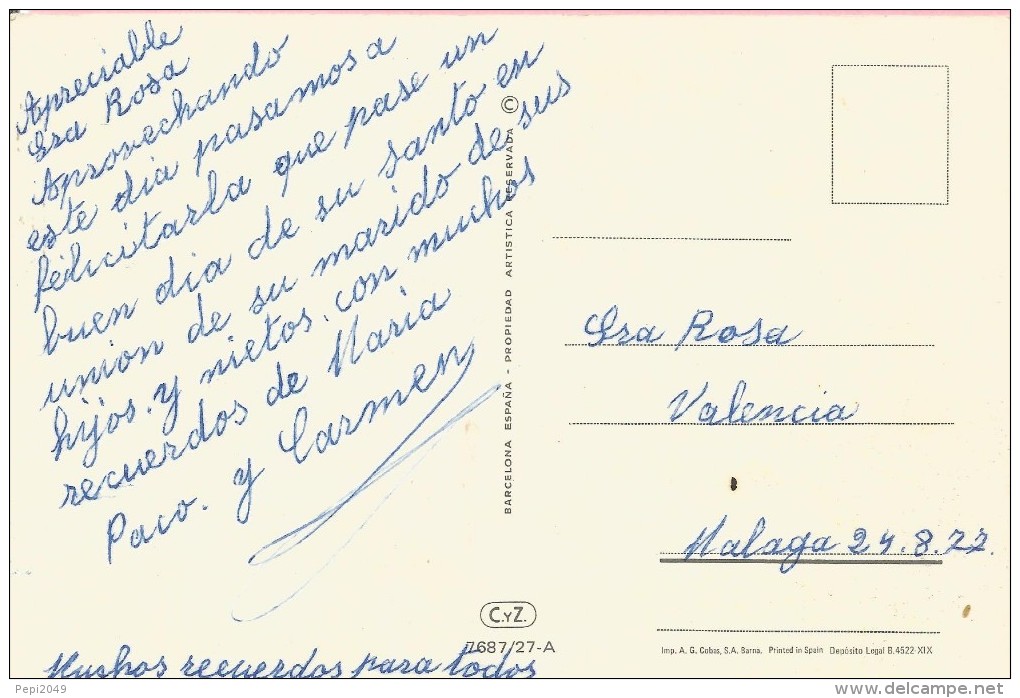 Apreciable
Sra Rosa
Aprovechando
este dia pasamos a
felicitarla que pase un
buen dia de su santo en
union de su marido de sus
hijos. y nietos. con muchos
recuerdos de Maria
Paco. y Carmen
Muchos recuerdos para todos
BARCELONA ESPAÑA - PROPIEDAD ARTISTICA RESERVADA ©
C.YZ.
7687/27-A
Sra Rosa
Valencia
Malaga 24.8.77.
Imp. A. G. Cobas, S.A. Barna. Printed in Spain Depósito Legal B.4522-XIX
Pepi2049
delcampe.net